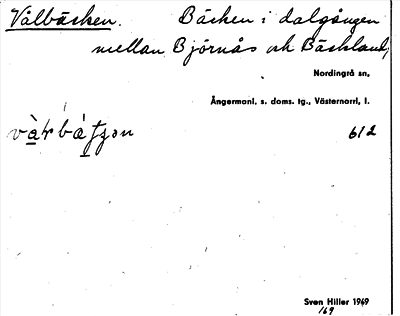 Vålbäcken. Bäcken i dalgången
mellan Björnås och Bäckland,
Nordingrå sn,
Ångermanl. s. doms. tg., Västernorrl. l.
612
Sven Hiller 1969
169